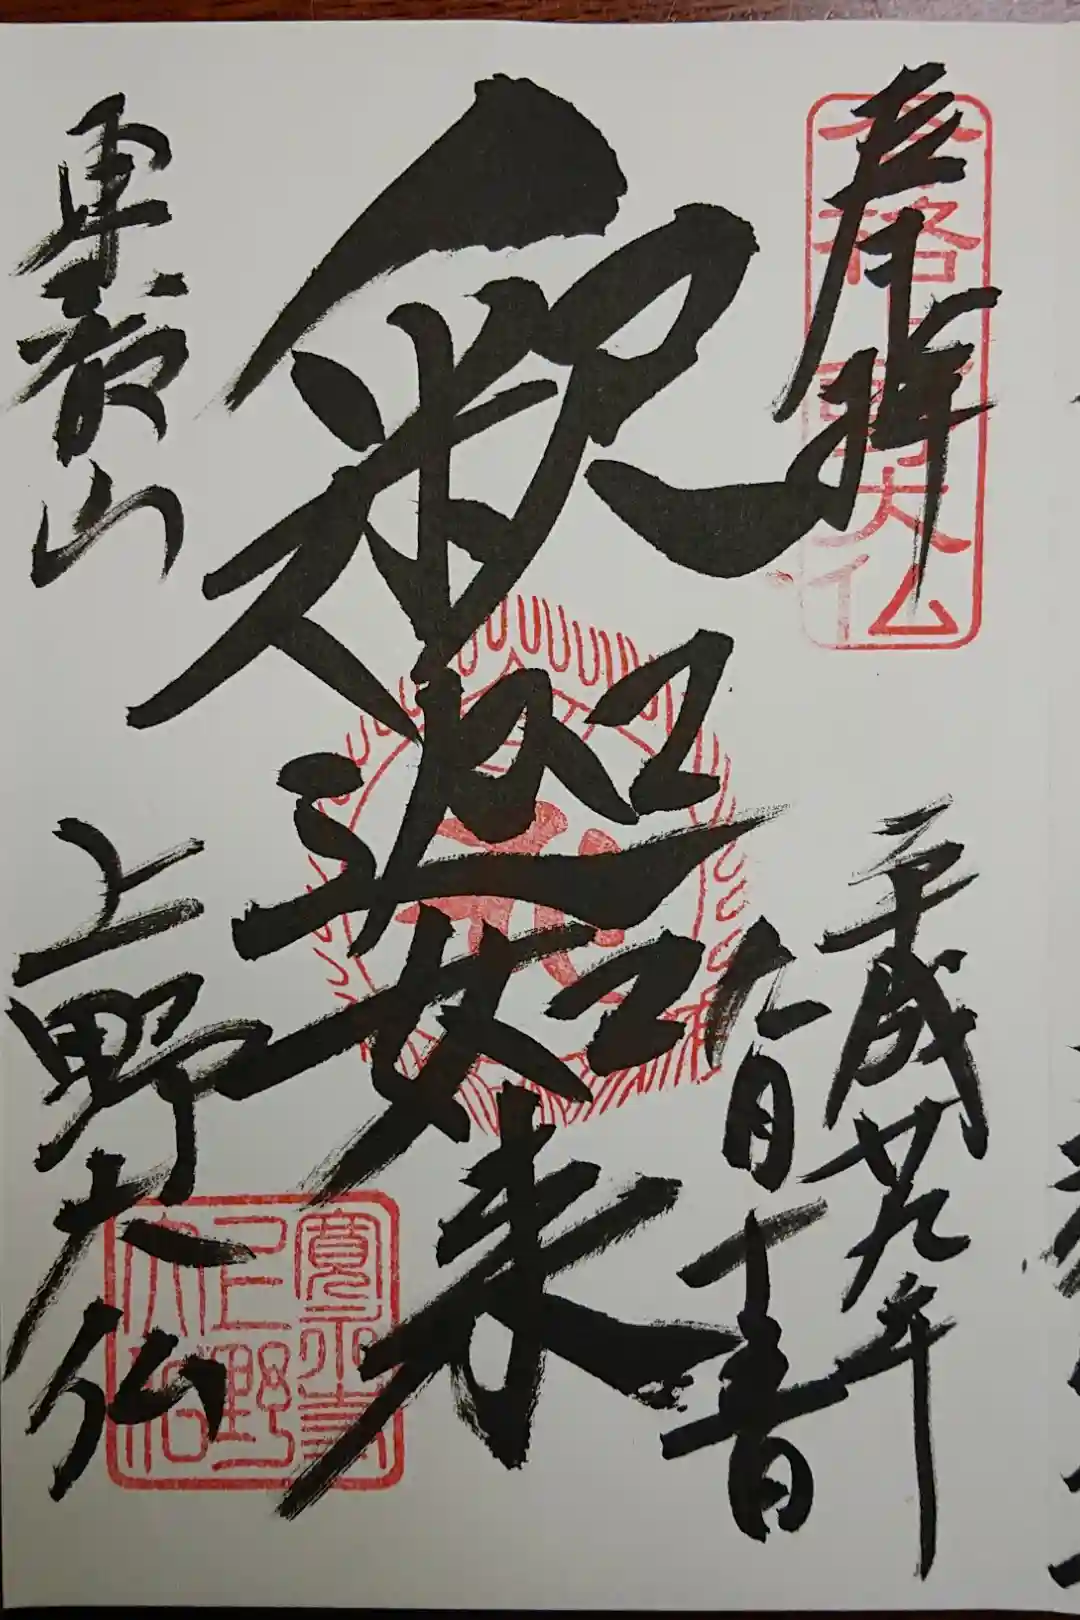 奉拝
平成廿九年
八月
釈迦如来
東叡山
上野大仏
合格上野大仏
寛永寺
上野
大佛